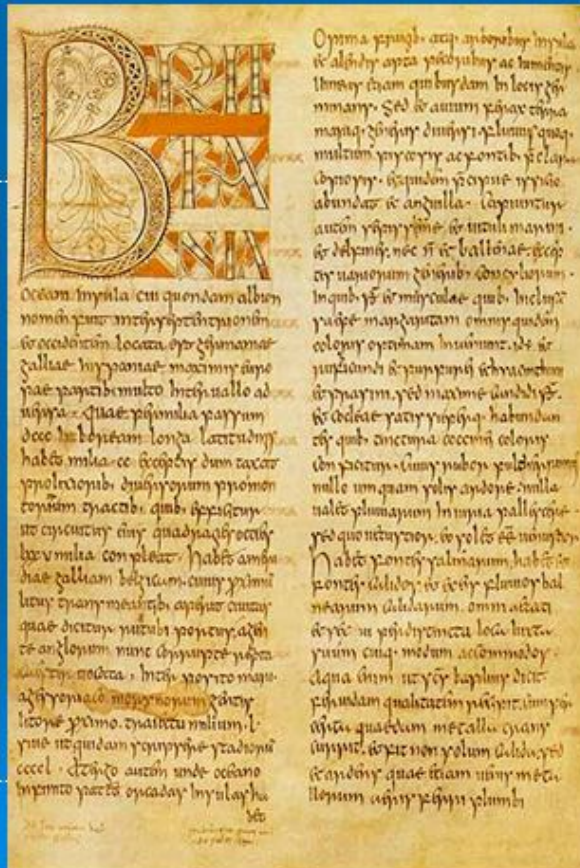 BRITTANIA
oceani insula cui quondam albion
nomen fuit inter septentrionem
et occidentem locata est germaniae
galliae hispaniae maximis euro
pae partib· multo interuallo ad
uersa · quae per milia passuum
dccc in boream longa latitudinis
habet milia · cc · exceptis dum taxat
prolixiorib· diuersorum promon
toriorum tractib· quib· efficitur
ut circuitus eius quadragies octies
lxxu milia compleat · habet a meri
diae galliam belgicam · cuius proximum
litus transmeantib· aperit ciuitas
quae dicitur rutubi portus a gen
te anglorum nunc corrupte
uocata · interposito mari
a gessoriaco morynorum gentis
litore proximo · traiectu milium · l ·
siue ut quidam scripsere stadiorum
ccccl · a tergo autem unde oceano
infinito patet orcadas insulas ha
bet
Opima frugib· atq· arborib· insula
et alendis apta pecorib· ac iumentis
uineas etiam quibusdam in locis ger
minans · sed et auium ferax terra
mariq· generis diuersi · fluuiis quoq·
multum piscosis ac fontib· praeclara
copiosis · et quidem praecipue issicio
abundat et anguilla · capiuntur
autem saepissime et uituli marini ·
et delfines nec non et ballenae · excep
tis uariorum generib· concyliorum ·
in quib· sunt et musculae quib· inclusam
saepe margaritam omnis quidem
coloris optimam inueniunt · id est et
rubicundi et purpurei et hyacinthini
et prasini · sed maxime candidi · sunt
et cocleae satis superq· habundan
tes quib· tinctura coccinei coloris
conficitur · cuius rubor pulcherrimus
nullo umquam solis ardore · nulla
ualet pluuiarum iniuria pallescere ·
sed quo uetustior · eo solet esse uenustior
habet fontes salinarum · habet et
fontes calidos · et ex eis fluuios bal
nearum calidarum · omni aetati
et sexui per distincta loca iuxta
suum cuiq· modum accommodos ·
aqua enim ut scs basilius dicit
feruidam qualitatem recipit · cum per
certa quaedam metalla trans
currit · et fit non solum calida · sed
et ardens quae etiam uenis meta
llorum aeris ferri plumbi